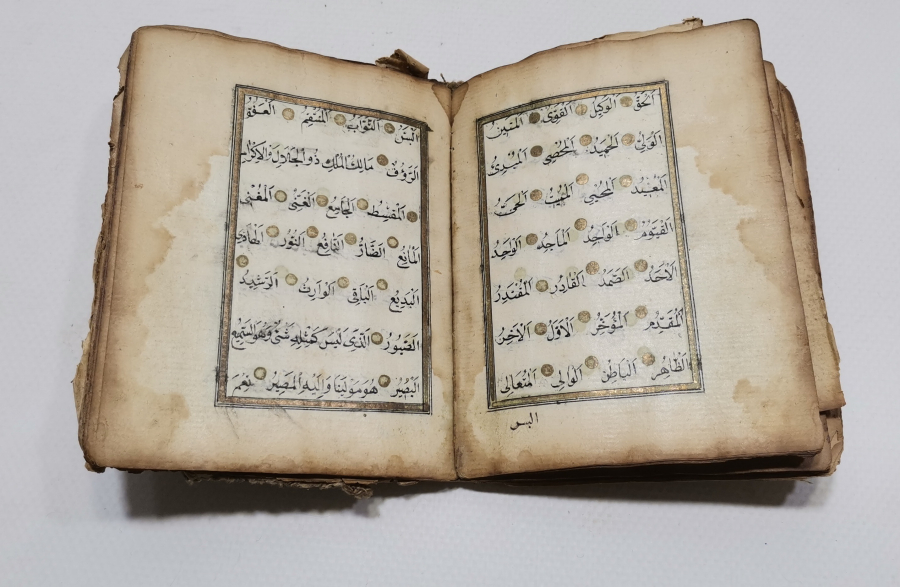 الحَقّ الوَكِيل القَوِيّ المَتِين
الوَلِيّ الحَمِيد المُحْصِي المُبْدِئ
المُعِيد المُحْيِي المُمِيت الحَيّ
القَيُّوم الوَاجِد المَاجِد الوَاحِد
الاَحَد الصَّمَد القَادِر المُقْتَدِر
المُقَدِّم المُؤَخِّر الاَوَّل الاَخِر
الظَّاهِر البَاطِن الوَالِي المُتَعَالِي
البر
البَرّ التَّوَّاب المُنْتَقِم العَفُوّ
الرَّؤُف مَالِكُ المُلْكِ ذُو الجَلَالِ وَالاِكْرَام
المُقْسِط الجَامِع الغَنِيّ المُغْنِي
المَانِع الضَّارّ النَّافِع النُّور الهَادِي
البَدِيع البَاقِي الوَارِث الرَّشِيد
الصَّبُور الَّذِي لَيْسَ كَمِثْلِهِ شَيْءٌ وَهُوَ السَّمِيع
البَصِير هُوَ مَوْلِينَا وَاِلَيْهِ المَصِير نِعْمَ